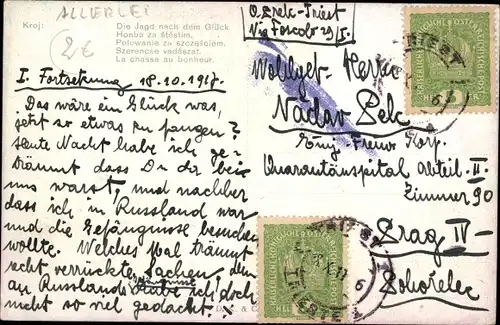 ALLERLEI
2€
Kroj:
Die Jagd nach dem Glück
Honba za štěstím.
Polowanie za szczęściem.
Szerencse vadászat.
La chasse au bonheur.
I. Fortsetzung 18.10.1917.
Das wäre ein Glück was,
jetzt so etwas zu fangen?
Heute Nacht habe ich ge-
träumt dass Du da bei
uns warst, und nachher
dass ich in Russland war
und die Gefängnisse besuchen
wollte. Welches Mal träumt
recht verrückte Sachen, denn
an Russland habe ich doch
nicht so viel gedacht!
Triest
Via Foscolo 29/I.
Wohlgeb. Herrn
Václav Pelc
Einj. Freiw. Korp.
Quarantänspital Abteil. II.
Zimmer 90
Prag IV-
Pohořelec
KAISERLICHE KÖNIGLICHE ÖSTERREICHISCHE POST
5 HELLER
TRIEST
KAISERLICHE KÖNIGLICHE ÖSTERREICHISCHE POST
TRIEST
6